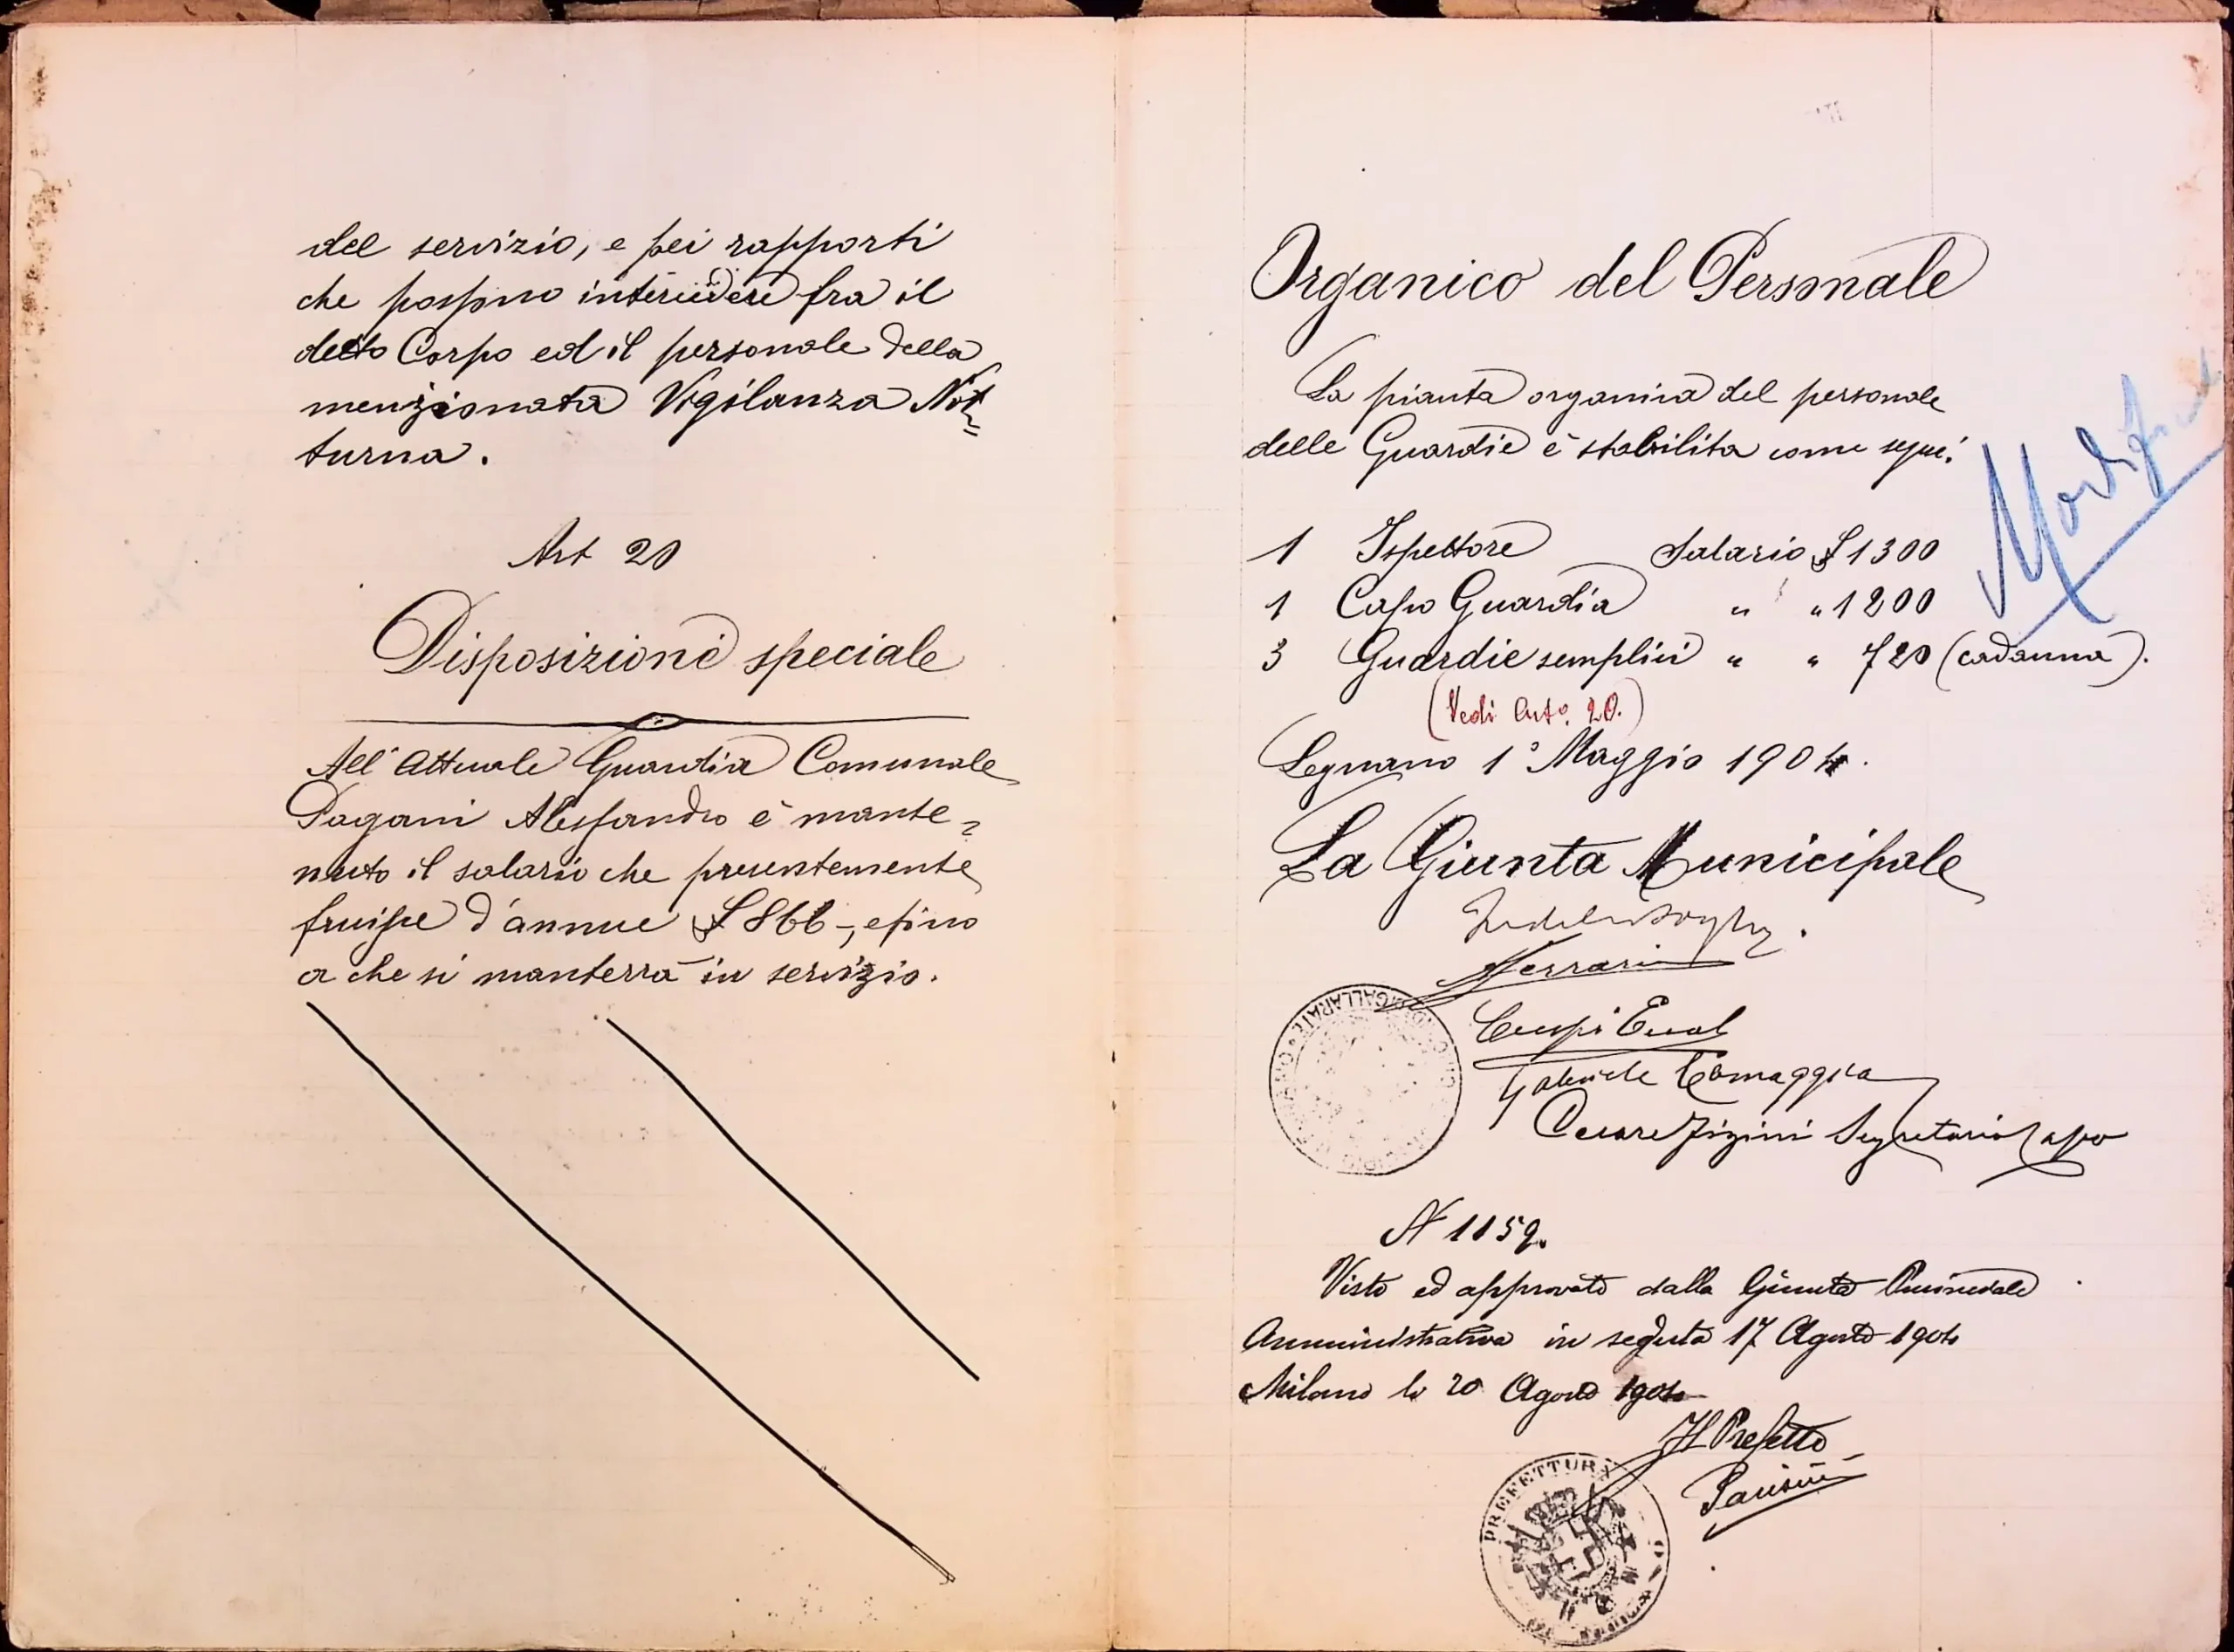 del servizio, e pei rapporti
che possono intercedere fra il
detto Corpo ed il personale della
menzionata Vigilanza Not=
turna.
Art 20
Disposizione speciale
All' attuale Guardia Comunale
Pagani Alessandro è mante=
nuto il salario che presentemente
fruisce d'annue £ 866-, e fino
a che si manterrà in servizio.
Organico del Personale
La pianta organica del personale
delle Guardie è stabilita come segue:
1 Ispettore Salario £ 1300
1 Capo Guardia " " 1200
3 Guardie semplici " " 720 (cadauna).
(Vedi Arto. 20.)
Legnano 1° Maggio 1904.
La Giunta Municipale
Ferrari
Crespi
Gabriele Tomaggia
Cesare Segretario Capo
GALLARATE
N 1159.
Visto ed approvato dalla Giunta Provinciale
Amministrativa in seduta 17 Agosto 1904
Milano li 20 Agosto 1904
Il Prefetto
PREFETTURA